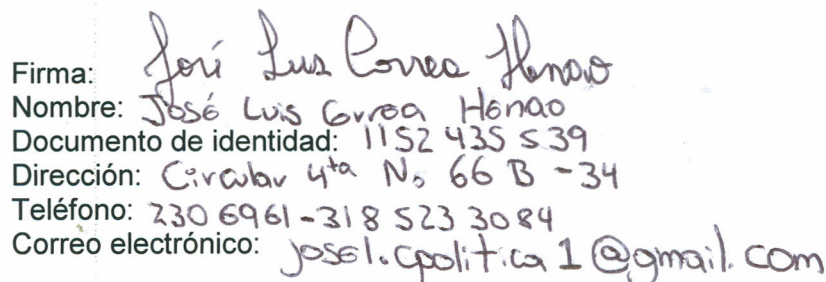 Firma: José Luis Correa Henao
Nombre: José Luis Correa Henao
Documento de identidad: 1152 435 539
Dirección: Circular 4ta No 66 B - 34
Teléfono: 230 6961 - 318 523 3084
Correo electrónico: josel.cpolitica1@gmail.com